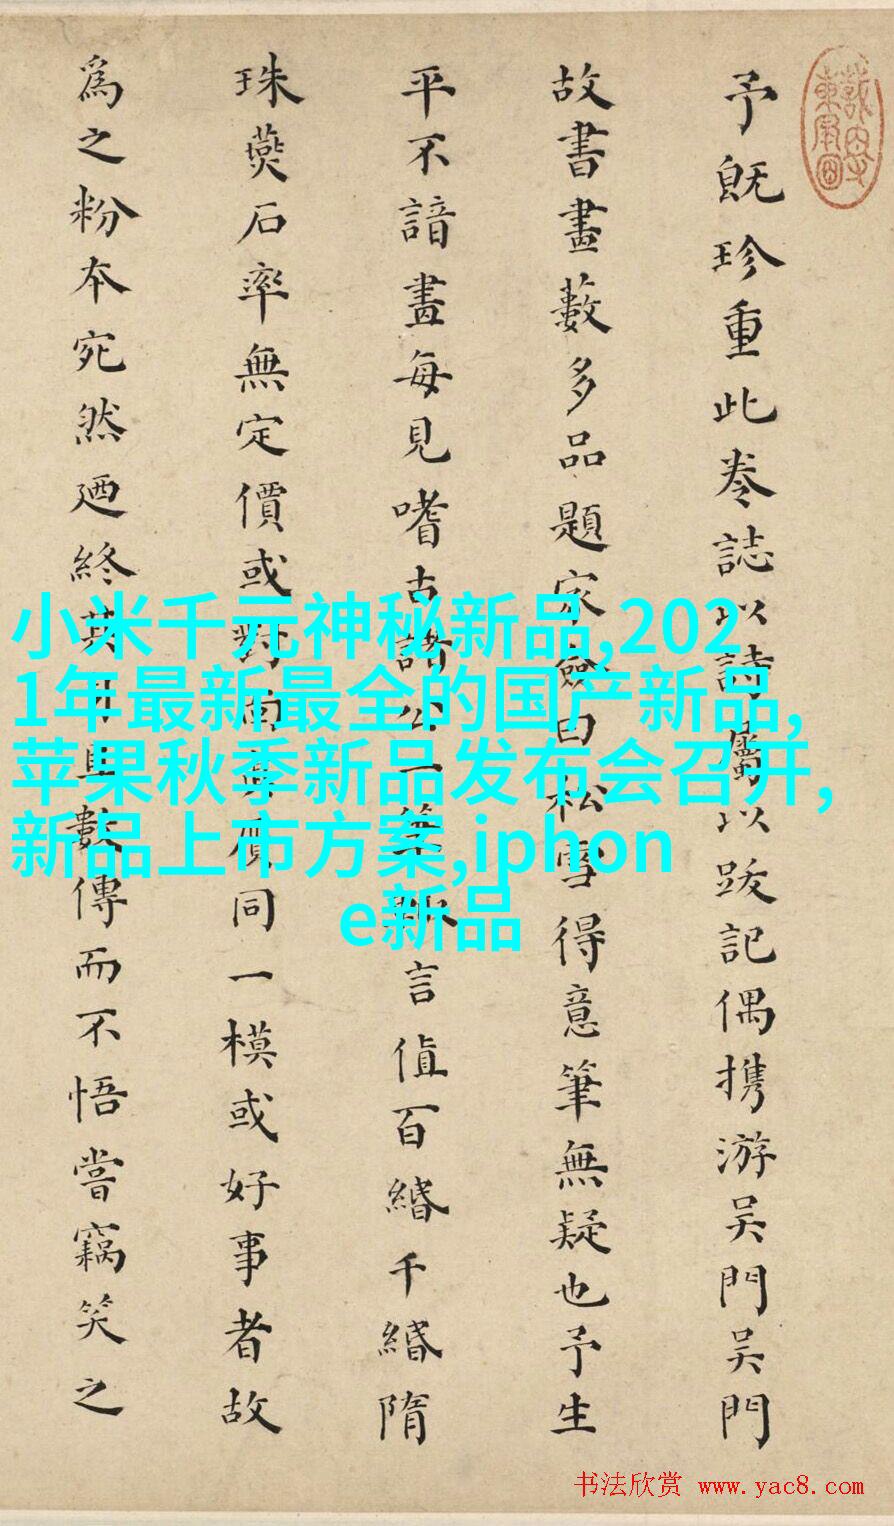 予既珍重此卷誌以詩屬以跋記偶携游吴門吴門
故書畫藪多品題家僉曰松雪得意筆無疑也予生
平不諳畫每見嗜古諸公一筆 言值百緡千緡隋
珠燕石率無定價或對面真贋同一模或好事者故
為之粉本宛然廼終其身且數傳而不悟嘗竊笑之
小米千元神秘新品,202
1年最新最全的国产新品,
苹果秋季新品发布会召开,
新品上市方案,iphon
e新品
书法欣赏 www.yac8.com